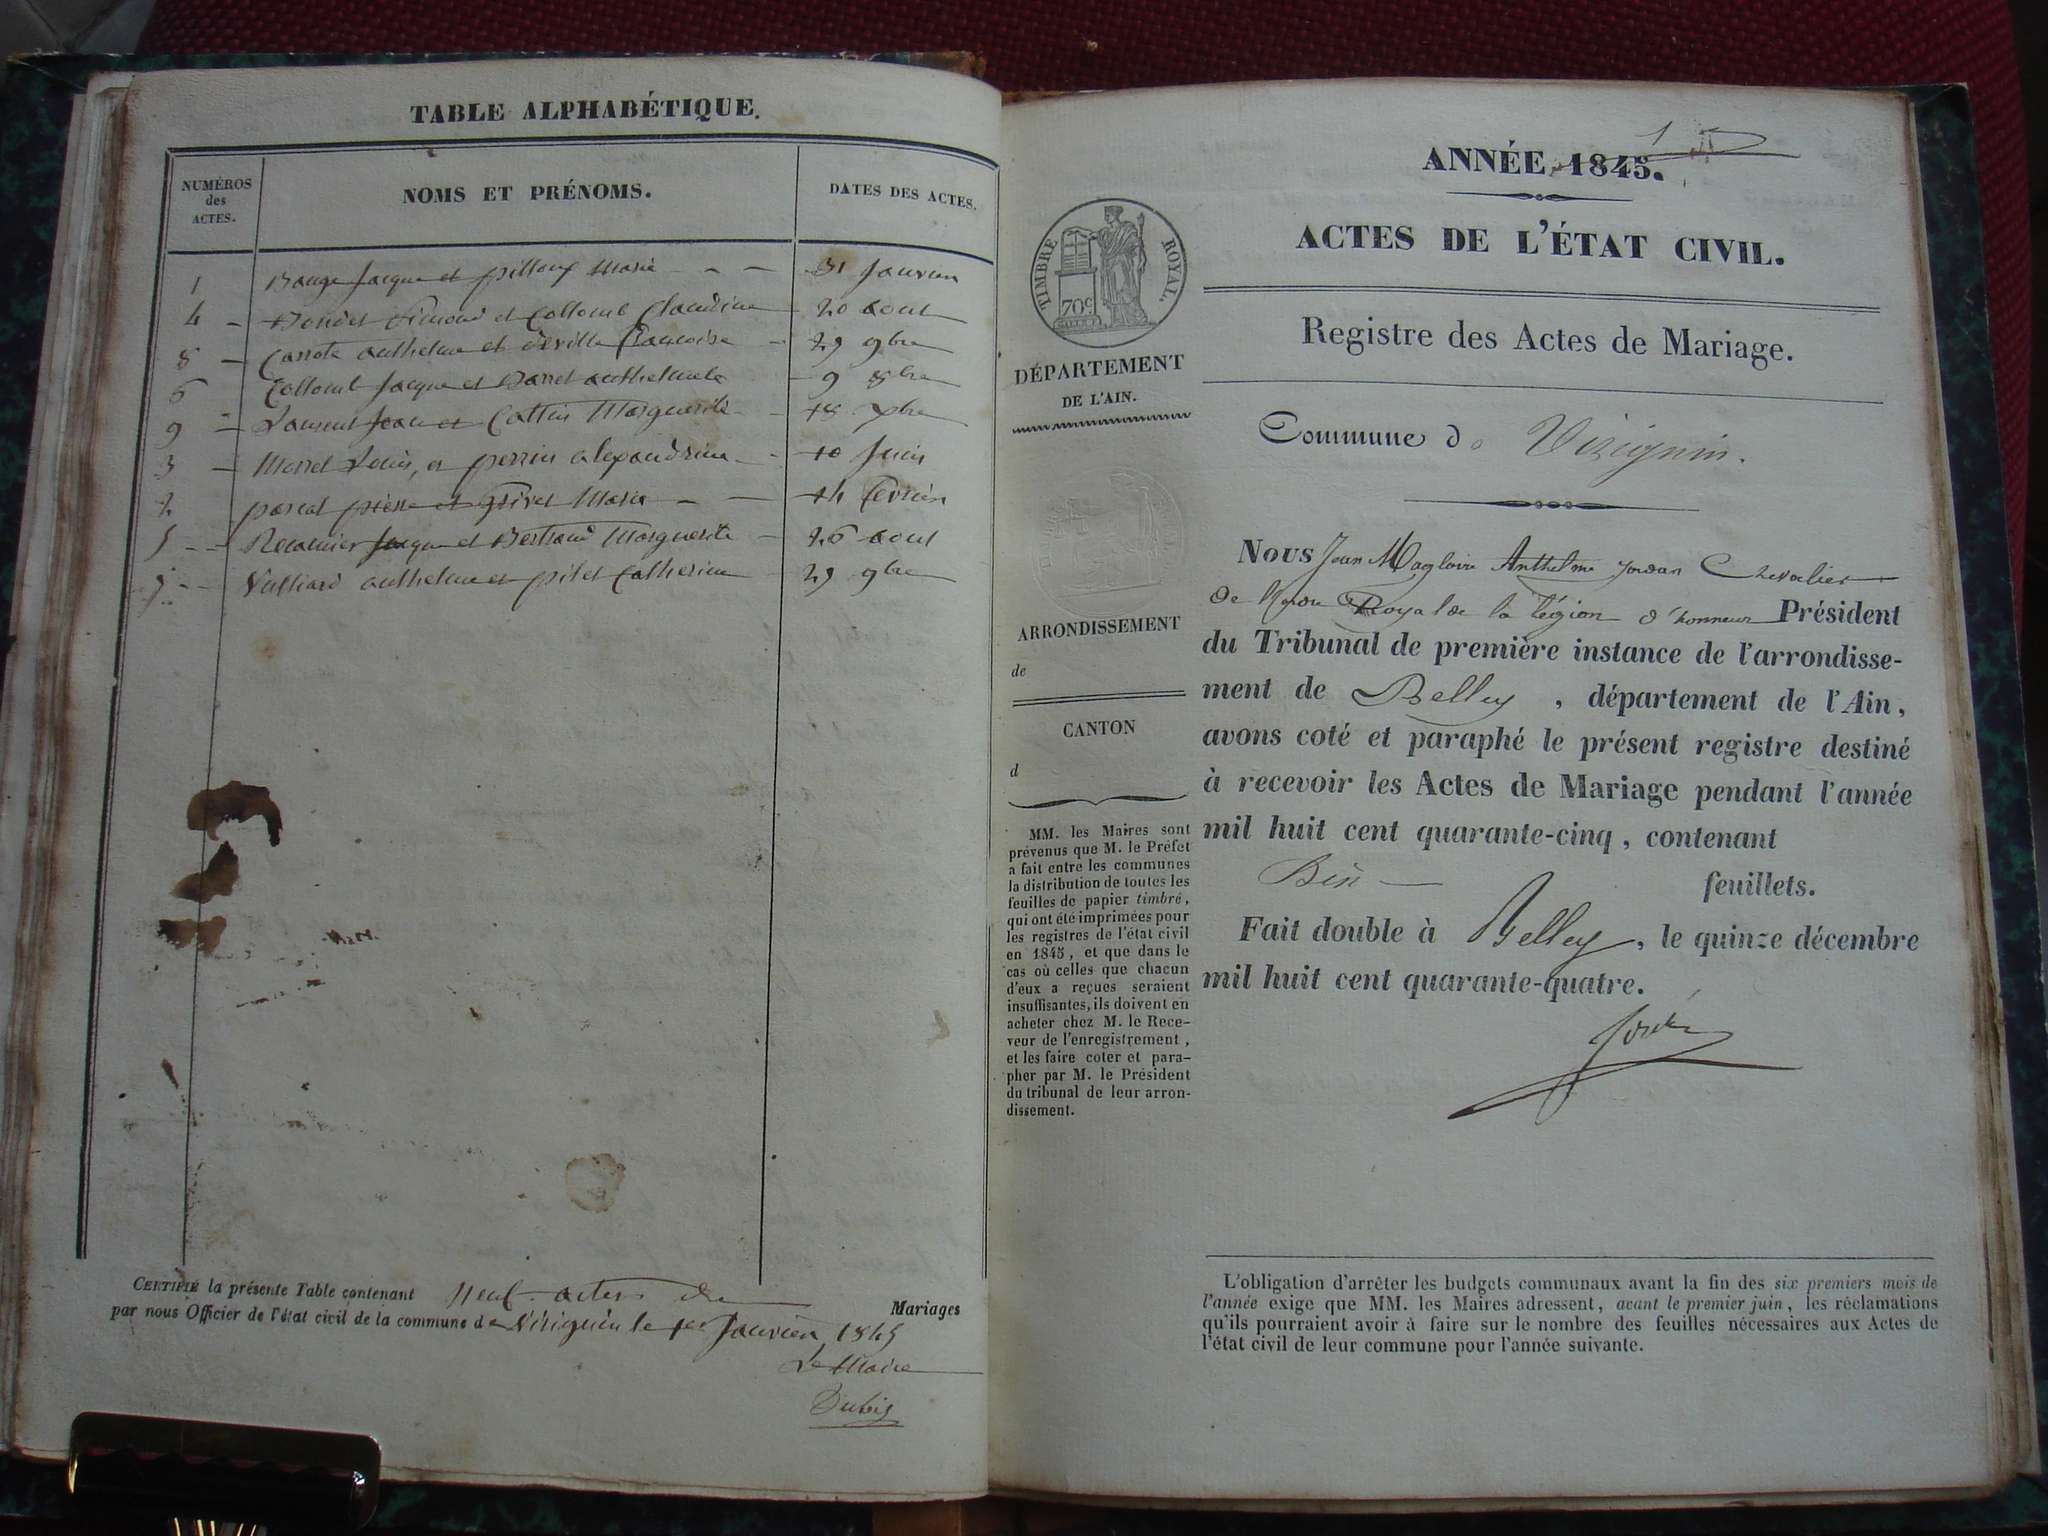 TABLE ALPHABÉTIQUE.
NUMÉROS
des
ACTES.
NOMS ET PRÉNOMS.
DATES DES ACTES.
1 Bauge Jacque et pilloux Marie 31 Janvier
4 et Collomb Claudine 20 aout
8 Carrote anthelme et deville Francoise 29 9bre
6 Collomb Jacque et anthelmete 9 8bre
9 Laurent Jean et Cattin Marguerite 18 xbre
3 Morret Louis, et perrin alexandrine 10 Juin
2 pascal pierre et Marie 14 fevrier
5 Recamier Jacque et Bertrand Marguerite 26 aout
7 Vulliard anthelme et pilet Catherine 29 9bre
CERTIFIÉ la présente Table contenant neuf actes de Mariages
par nous Officier de l'état civil de la commune de Virignin le 1er Janvier 1845
Le Maire
Dubis
ANNÉE 1845.
ACTES DE L'ÉTAT CIVIL.
Registre des Actes de Mariage.
Commune de Virignin.
TIMBRE ROYAL.
70c
DÉPARTEMENT
DE L'AIN.
ARRONDISSEMENT
de
CANTON
d
MM. les Maires sont
prévenus que M. le Préfet
a fait entre les communes
la distribution de toutes les
feuilles de papier timbré,
qui ont été imprimées pour
les registres de l'état civil
en 1845, et que dans le
cas où celles que chacun
d'eux a reçues seraient
insuffisantes, ils doivent en
acheter chez M. le Rece-
veur de l'enregistrement,
et les faire coter et para-
pher par M. le Président
du tribunal de leur arron-
dissement.
NOUS Jean Magloire Anthelme Jordan Chevalier
de l'ordre Royal de la légion d'honneur Président
du Tribunal de première instance de l'arrondisse-
ment de Belley, département de l'Ain,
avons coté et paraphé le présent registre destiné
à recevoir les Actes de Mariage pendant l'année
mil huit cent quarante-cinq, contenant
feuillets.
Fait double à Belley, le quinze décembre
mil huit cent quarante-quatre.
L'obligation d'arrêter les budgets communaux avant la fin des six premiers mois de
l'année exige que MM. les Maires adressent, avant le premier juin, les réclamations
qu'ils pourraient avoir à faire sur le nombre des feuilles nécessaires aux Actes de
l'état civil de leur commune pour l'année suivante.